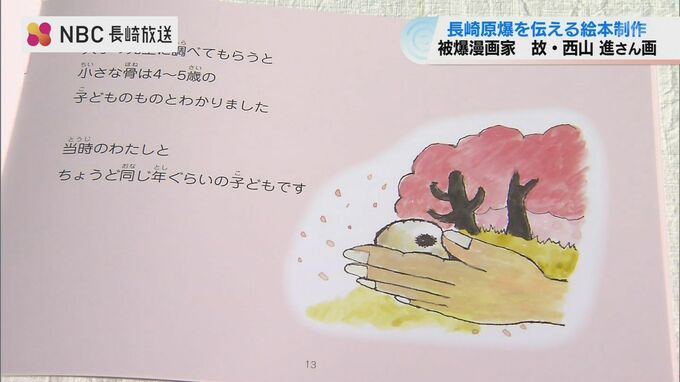 NBC 長崎放送
長崎原爆を伝える絵本制作
被爆漫画家 故・西山 進さん画
調べてもらうと
小さな骨は4～5歳の
子どものものとわかりました
当時のわたしと
ちょうど同じ年ぐらいの子どもです
13